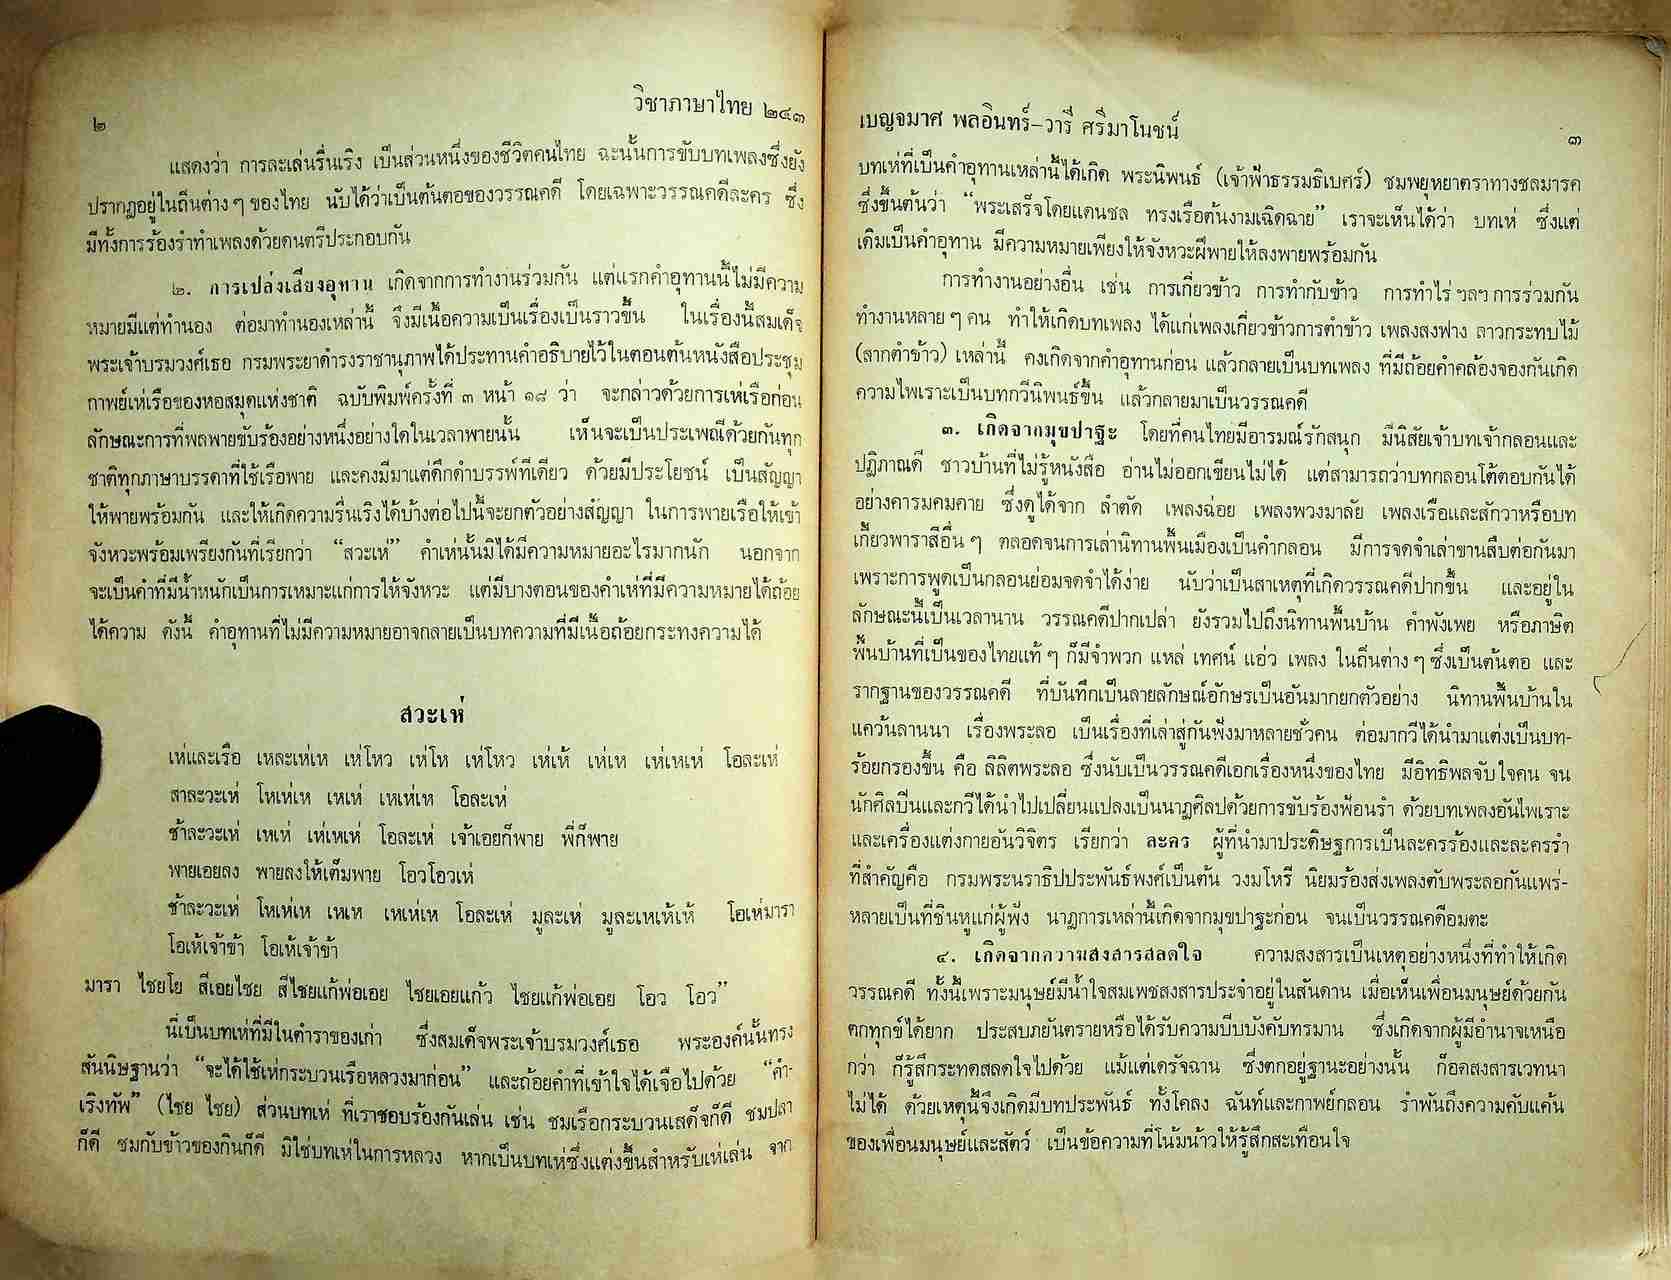 ๒
วิชาภาษาไทย ๒๔๓
แสดงว่า การละเล่นรื่นเริง เป็นส่วนหนึ่งของชีวิตคนไทย ฉะนั้นการขับบทเพลงซึ่งยัง
ปรากฏอยู่ในถิ่นต่าง ๆ ของไทย นับได้ว่าเป็นต้นตอของวรรณคดี โดยเฉพาะวรรณคดีละคร ซึ่ง
มีทั้งการร้องรำทำเพลงด้วยดนตรีประกอบกัน
๒. การเปล่งเสียงอุทาน เกิดจากการทำงานร่วมกัน แต่แรกคำอุทานนี้ไม่มีความ
หมายมีแต่ทำนอง ต่อมาทำนองเหล่านี้ จึงมีเนื้อความเป็นเรื่องเป็นราวขึ้น ในเรื่องนี้สมเด็จ
พระเจ้าบรมวงศ์เธอ กรมพระยาดำรงราชานุภาพได้ประทานคำอธิบายไว้ในตอนต้นหนังสือประชุม
กาพย์เห่เรือของหอสมุดแห่งชาติ ฉบับพิมพ์ครั้งที่ ๓ หน้า ๑๘ ว่า จะกล่าวด้วยการเห่เรือก่อน
ลักษณะการที่พลพายขับร้องอย่างหนึ่งอย่างใดในเวลาพายนั้น เห็นจะเป็นประเพณีด้วยกันทุก
ชาติทุกภาษาบรรดาที่ใช้เรือพาย และคงมีมาแต่ดึกดำบรรพ์ทีเดียว ด้วยมีประโยชน์ เป็นสัญญา
ให้พายพร้อมกัน และให้เกิดความรื่นเริงได้บ้างต่อไปนี้จะยกตัวอย่างสัญญา ในการพายเรือให้เข้า
จังหวะพร้อมเพรียงกันที่เรียกว่า “สวะเห่” คำเห่นั้นมิได้มีความหมายอะไรมากนัก นอกจาก
จะเป็นคำที่มีน้ำหนักเป็นการเหมาะแก่การให้จังหวะ แต่มีบางตอนของคำเห่ที่มีความหมายได้ถ้อย
ได้ความ ดังนี้ คำอุทานที่ไม่มีความหมายอาจกลายเป็นบทความที่มีเนื้อถ้อยกระทงความได้
สวะเห่
เห่และเรือ เหละเห่เห เห่โหว เห่โห เห่โหว เห่เห้ เห่เห เห่เหเห่ โอละเห่
สาละวะเห่ โหเห่เห เหเห่ เหเห่เห โอละเห่
ช้าละวะเห่ เหเห่ เห่เหเห่ โอละเห่ เจ้าเอยก็พาย พี่ก็พาย
พายเอยลง พายลงให้เต็มพาย โอวโอวเห่
ช้าละวะเห่ โหเห่เห เหเห เหเห่เห โอละเห่ มูละเห่ มูละเหเห้เห้ โอเห่มารา
โอเห้เจ้าข้า โอเห้เจ้าข้า
มารา ไชยโย สีเอยไชย สีไชยแก้พ่อเอย ไชยเอยแก้ว ไชยแก้พ่อเอย โอว โอว”
นี่เป็นบทเห่ที่มีในตำราของเก่า ซึ่งสมเด็จพระเจ้าบรมวงศ์เธอ พระองค์นั้นทรง
สันนิษฐานว่า “จะได้ใช้เห่กระบวนเรือหลวงมาก่อน” และถ้อยคำที่เข้าใจได้เจือไปด้วย “คำ-
เริงทัพ” (ไชย ไชย) ส่วนบทเห่ ที่เราชอบร้องกันเล่น เช่น ชมเรือกระบวนเสด็จก็ดี ชมปลา
ก็ดี ชมกับข้าวของกินก็ดี มิใช่บทเห่ในการหลวง หากเป็นบทเห่ซึ่งแต่งขึ้นสำหรับเห่เล่น จาก
เบญจมาศ พลอินทร์-วารี ศรีมาโนชน์
๓
บทเห่ที่เป็นคำอุทานเหล่านี้ได้เกิด พระนิพนธ์ (เจ้าฟ้าธรรมธิเบศร์) ชมพยุหยาตราทางชลมารค
ซึ่งขึ้นต้นว่า “พระเสร็จโดยแดนชล ทรงเรือต้นงามเฉิดฉาย” เราจะเห็นได้ว่า บทเห่ ซึ่งแต่
เดิมเป็นคำอุทาน มีความหมายเพียงให้จังหวะฝีพายให้ลงพายพร้อมกัน
การทำงานอย่างอื่น เช่น การเกี่ยวข้าว การทำกับข้าว การทำไร่ ฯลฯ การร่วมกัน
ทำงานหลาย ๆ คน ทำให้เกิดบทเพลง ได้แก่เพลงเกี่ยวข้าวการตำข้าว เพลงสงฟาง ลาวกระทบไม้
(สากตำข้าว) เหล่านี้ คงเกิดจากคำอุทานก่อน แล้วกลายเป็นบทเพลง ที่มีถ้อยคำคล้องจองกันเกิด
ความไพเราะเป็นบทกวีนิพนธ์ขึ้น แล้วกลายมาเป็นวรรณคดี
๓. เกิดจากมุขปาฐะ โดยที่คนไทยมีอารมณ์รักสนุก มีนิสัยเจ้าบทเจ้ากลอนและ
ปฏิภาณดี ชาวบ้านที่ไม่รู้หนังสือ อ่านไม่ออกเขียนไม่ได้ แต่สามารถว่าบทกลอนโต้ตอบกันได้
อย่างคารมคมคาย ซึ่งดูได้จาก ลำตัด เพลงฉ่อย เพลงพวงมาลัย เพลงเรือและสักวาหรือบท
เกี้ยวพาราสีอื่น ๆ ตลอดจนการเล่านิทานพื้นเมืองเป็นคำกลอน มีการจดจำเล่าขานสืบต่อกันมา
เพราะการพูดเป็นกลอนย่อมจดจำได้ง่าย นับว่าเป็นสาเหตุที่เกิดวรรณคดีปากขึ้น และอยู่ใน
ลักษณะนี้เป็นเวลานาน วรรณคดีปากเปล่า ยังรวมไปถึงนิทานพื้นบ้าน คำพังเพย หรือภาษิต
พื้นบ้านที่เป็นของไทยแท้ ๆ ก็มีจำพวก แหล่ เทศน์ แอ่ว เพลง ในถิ่นต่าง ๆ ซึ่งเป็นต้นตอ และ
รากฐานของวรรณคดี ที่บันทึกเป็นลายลักษณ์อักษรเป็นอันมากยกตัวอย่าง นิทานพื้นบ้านใน
แคว้นลานนา เรื่องพระลอ เป็นเรื่องที่เล่าสู่กันฟังมาหลายชั่วคน ต่อมากวีได้นำมาแต่งเป็นบท-
ร้อยกรองขึ้น คือ ลิลิตพระลอ ซึ่งนับเป็นวรรณคดีเอกเรื่องหนึ่งของไทย มีอิทธิพลจับใจคน จน
นักศิลปินและกวีได้นำไปเปลี่ยนแปลงเป็นนาฏศิลปด้วยการขับร้องฟ้อนรำ ด้วยบทเพลงอันไพเราะ
และเครื่องแต่งกายอันวิจิตร เรียกว่า ละคร ผู้ที่นำมาประดิษฐการเป็นละครร้องและละครรำ
ที่สำคัญคือ กรมพระนราธิปประพันธ์พงศ์เป็นต้น วงมโหรี นิยมร้องส่งเพลงตับพระลอกันแพร่-
หลายเป็นที่ชินหูแก่ผู้ฟัง นาฏการเหล่านี้เกิดจากมุขปาฐะก่อน จนเป็นวรรณคดีอมตะ
๔. เกิดจากความสงสารสลดใจ ความสงสารเป็นเหตุอย่างหนึ่งที่ทำให้เกิด
วรรณคดี ทั้งนี้เพราะมนุษย์มีน้ำใจสมเพชสงสารประจำอยู่ในสันดาน เมื่อเห็นเพื่อนมนุษย์ด้วยกัน
ตกทุกข์ได้ยาก ประสบภยันตรายหรือได้รับความบีบบังคับทรมาน ซึ่งเกิดจากผู้มีอำนาจเหนือ
กว่า ก็รู้สึกระทดสลดใจไปด้วย แม้แต่เดรัจฉาน ซึ่งตกอยู่ฐานะอย่างนั้น ก็อดสงสารเวทนา
ไม่ได้ ด้วยเหตุนี้จึงเกิดมีบทประพันธ์ ทั้งโคลง ฉันท์และกาพย์กลอน รำพันถึงความคับแค้น
ของเพื่อนมนุษย์และสัตว์ เป็นข้อความที่โน้มน้าวให้รู้สึกสะเทือนใจ